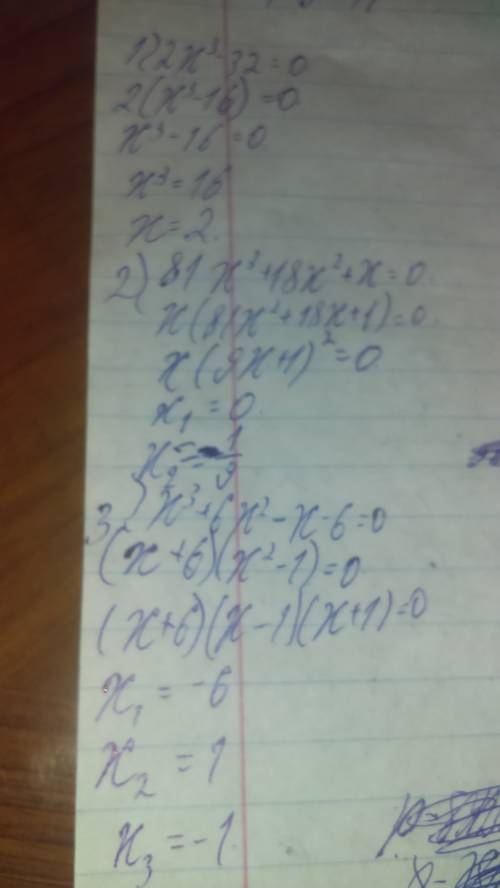 1) 2x³-32=0
2(x³-16)=0
x³-16=0
x³=16
x=2.
2) 81x³+18x²+x=0
x(81x²+18x+1)=0
x(9x+1)²=0
x₁=0
x₂=-1/9
3) x³+6x²-x-6=0
(x+6)(x²-1)=0
(x+6)(x-1)(x+1)=0
x₁=-6
x₂=1
x₃=-1